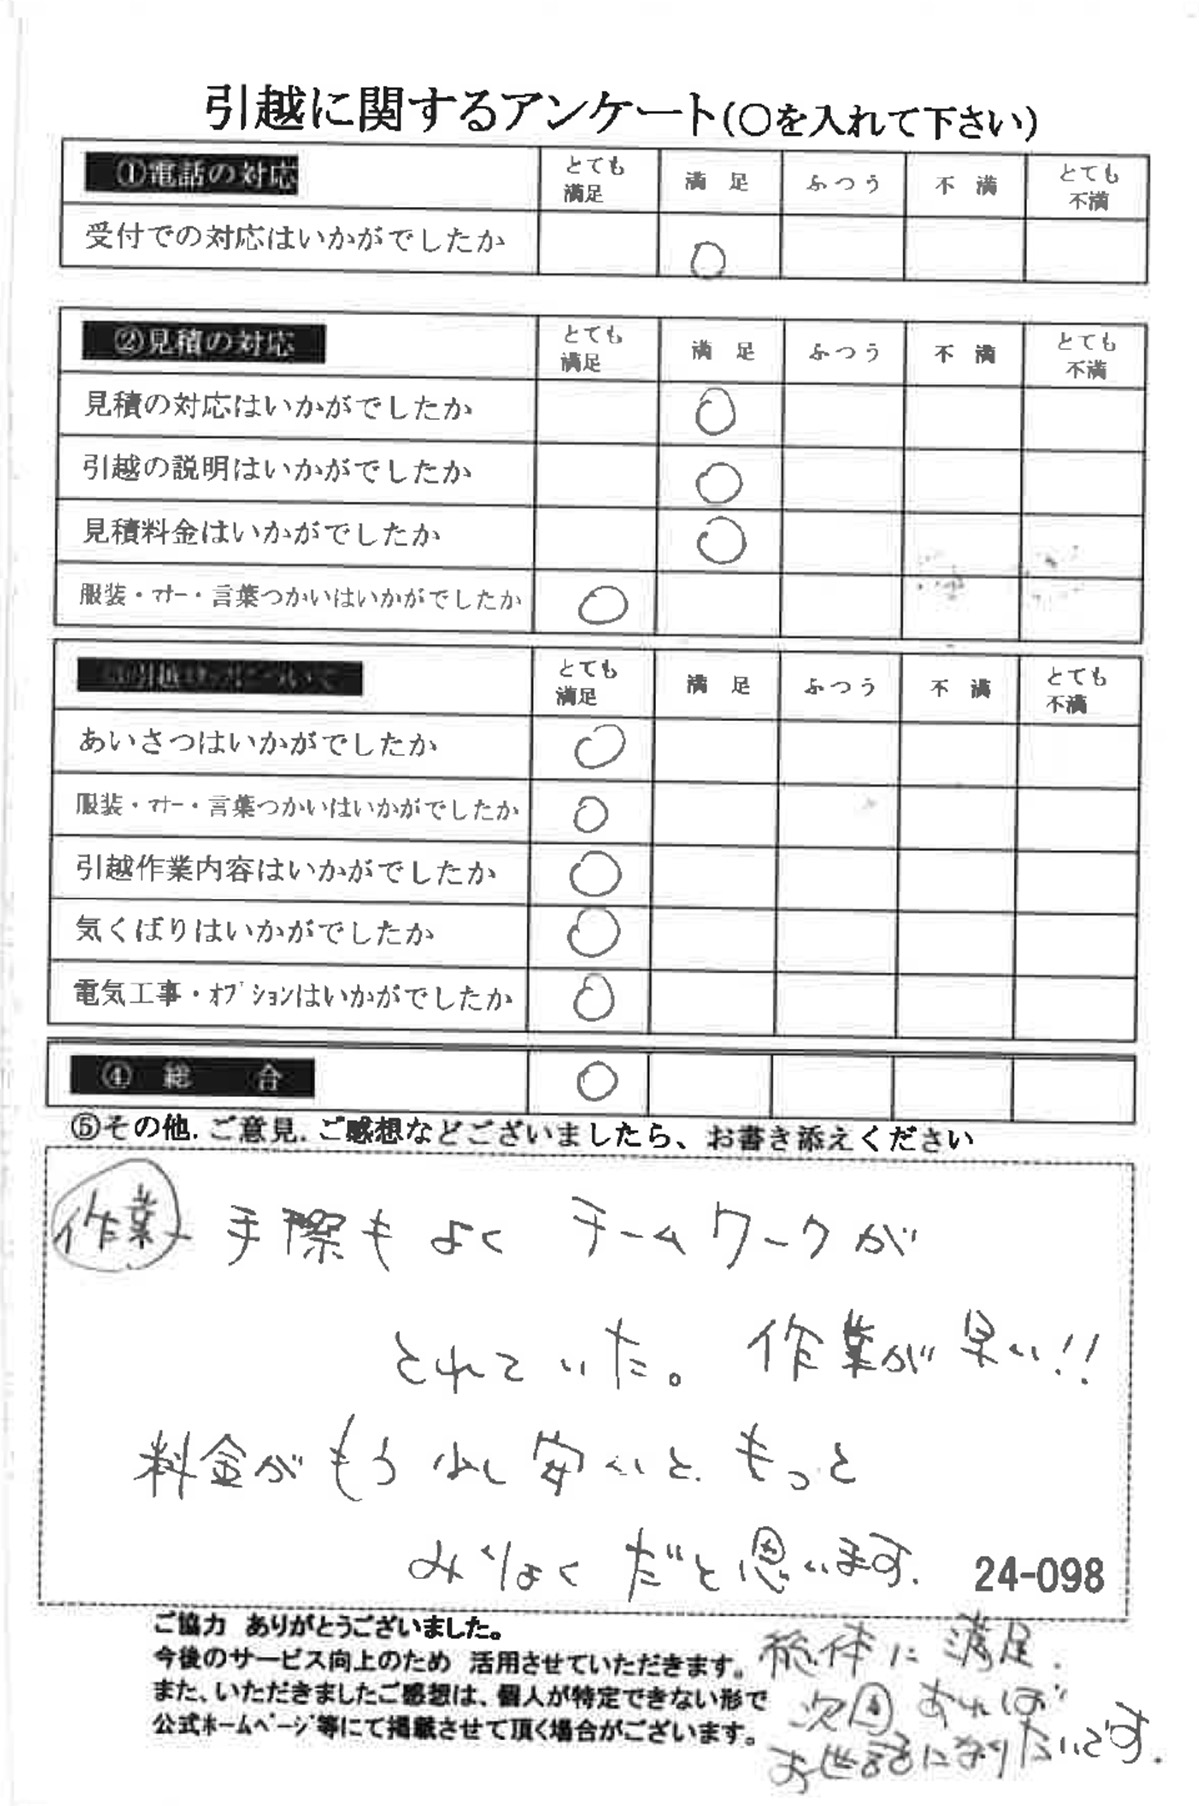 引越に関するアンケート(〇を入れて下さい)
①電話の対応 とても満足 満 足 ふつう 不 満 とても不満
受付での対応はいかがでしたか ○
②見積の対応 とても満足 満 足 ふつう 不 満 とても不満
見積の対応はいかがでしたか ○
引越の説明はいかがでしたか ○
見積料金はいかがでしたか ○
服装・マナー・言葉つかいはいかがでしたか ○
③引越 ついて とても満足 満 足 ふつう 不 満 とても不満
あいさつはいかがでしたか ○
服装・マナー・言葉つかいはいかがでしたか ○
引越作業内容はいかがでしたか ○
気くばりはいかがでしたか ○
電気工事・オプションはいかがでしたか ○
④ 総 合 ○
⑤その他.ご意見.ご感想などございましたら、お書き添えください
作業 手際もよく チームワークが
とれていた。 作業が早い!!
料金がもう少し安いと、もっと
みりょくだと思います.
24-098
ご協力 ありがとうございました。
今後のサービス向上のため 活用させていただきます。
また、いただきましたご感想は、個人が特定できない形で
公式ホームページ等にて掲載させて頂く場合がございます。
総体に満足.
次回あれば
お世話になりたいです.